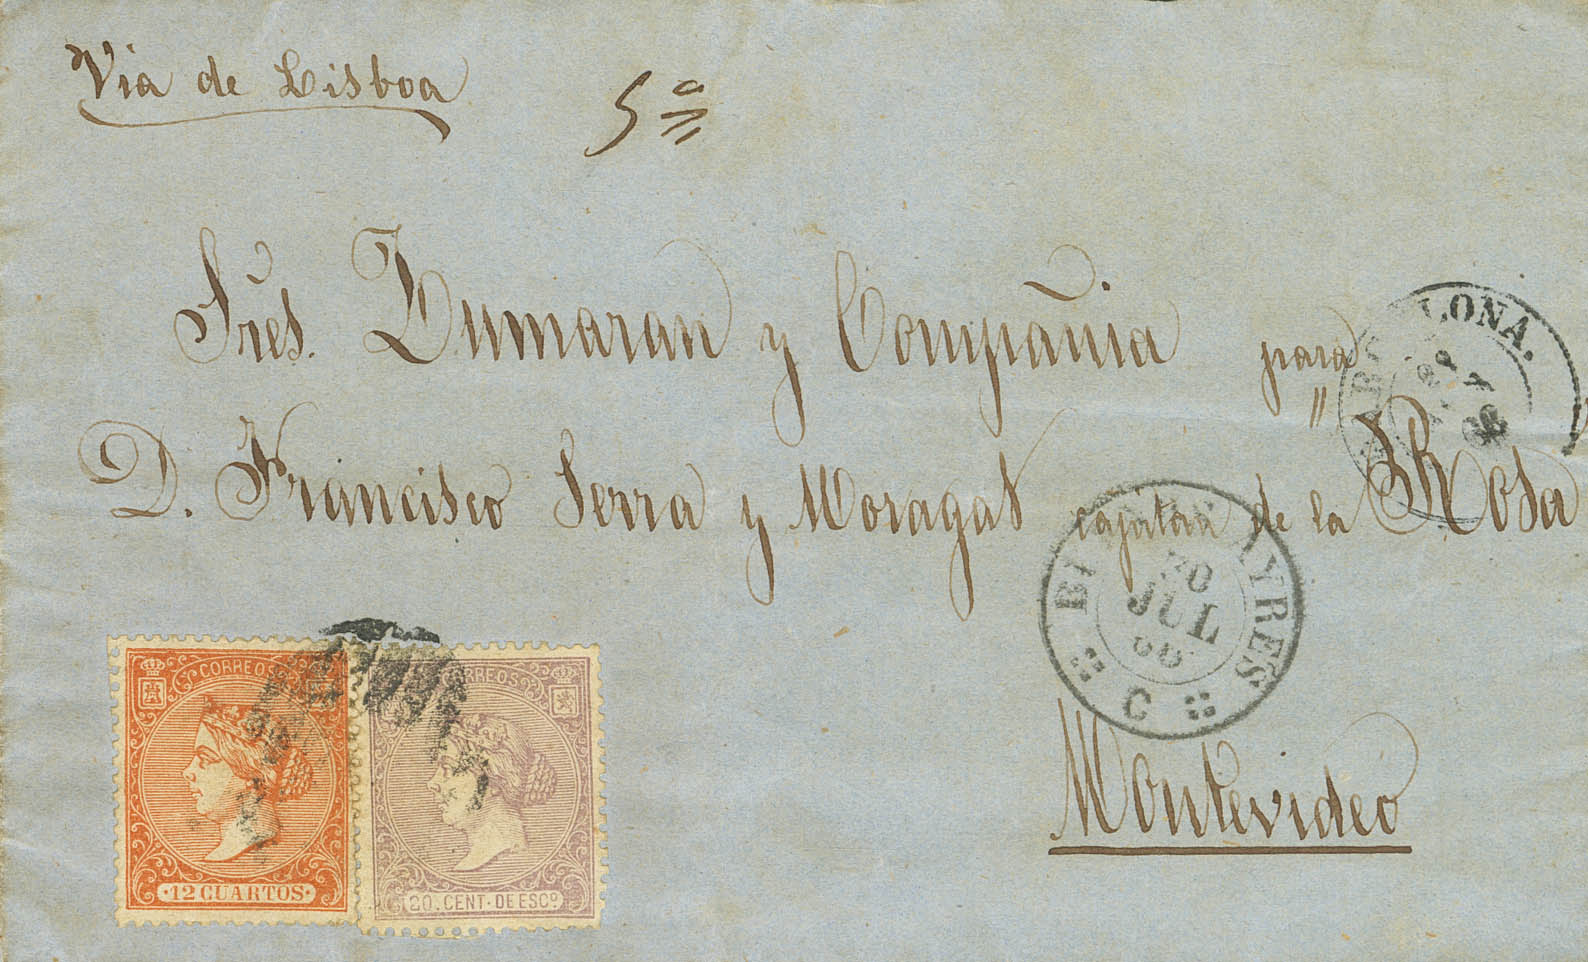 Via de Lisboa
5ª
Sres. Dumaran y Compañia para
D. Francisco Serra y Moragas de la Rosa
Montevideo
BARCELONA.
66
BUENOS AYRES
20
JUL
66
C
CORREOS
12 CUARTOS
CORREOS
20. CENT. DE ESCº